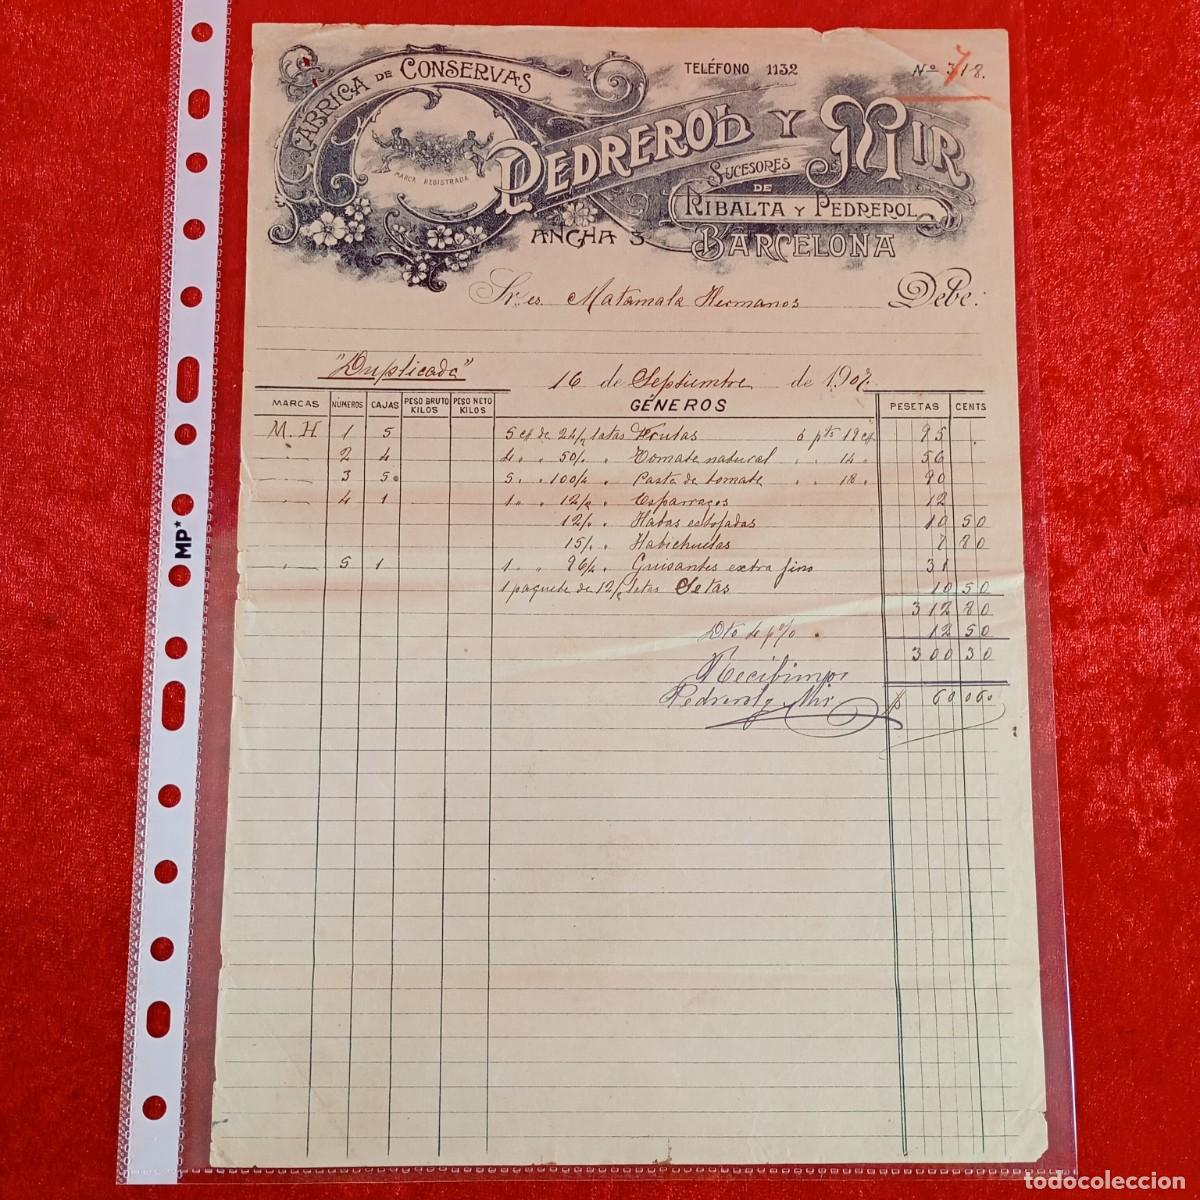 FABRICA DE CONSERVAS
TELÉFONO 1132
Nº 718.
PEDREROL Y MIR
MARCA REGISTRADA
SUCESORES
DE
RIBALTA Y PEDREROL
ANCHA 3
BARCELONA
Sres. Matamala Hermanos Debe:
"Duplicada"
16 de Septiembre de 1907.
MARCAS NÚMEROS CAJAS PESO BRUTO KILOS PESO NETO KILOS GÉNEROS PESETAS CENTS
M. H 1 5 5 de 24/2 latas Frutas á pts 19 95
" 2 4 4 " " 50/2 " Tomate natural " " 14 " 56
" 3 5 5 " " 100/4 " Pasta de tomate " " 18 " 90
" 4 1 1 " " 12/2 " Esparragos 12
12/2 " Habas estofadas 10 50
15/2 " Habichuelas 7 80
" 5 1 1 " " 96/4 " Guisantes extra fino 31
1 paquete de 12/2 latas Setas 10 50
312 80
Dto 4 p% 12 50
300 30
Recibimos
Pedrerol y Mir 60 060
MP*
todocoleccion